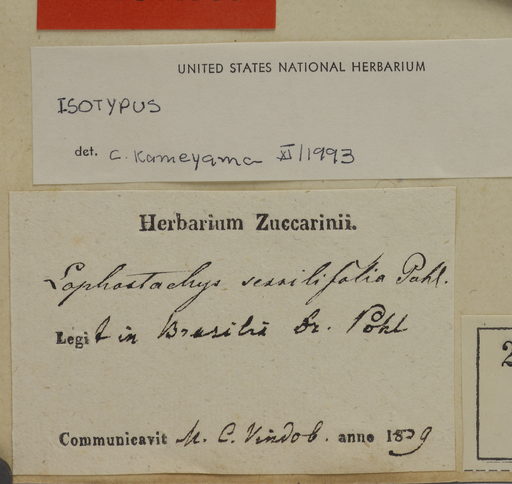 UNITED STATES NATIONAL HERBARIUM
ISOTYPUS
det. C. Kameyama XI/1993
Herbarium Zuccarinii.
Lophostachys sessilifolia Pohl.
Legit in Brasilia Dr. Pohl
Communicavit M. C. Vindob. anno 1839
2